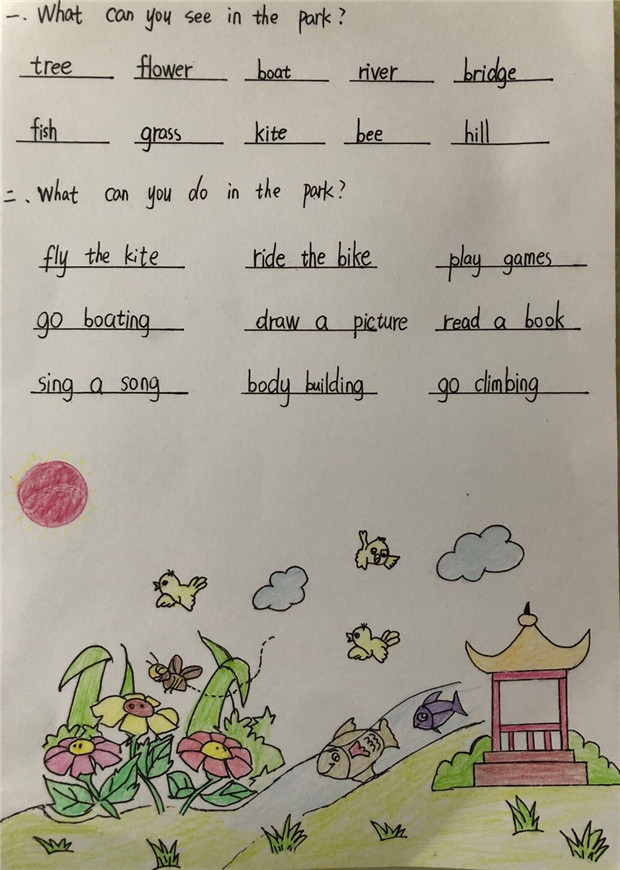 一. What can you see in the park?
tree flower boat river bridge
fish grass kite bee hill
二. What can you do in the park?
fly the kite ride the bike play games
go boating draw a picture read a book
sing a song body building go climbing